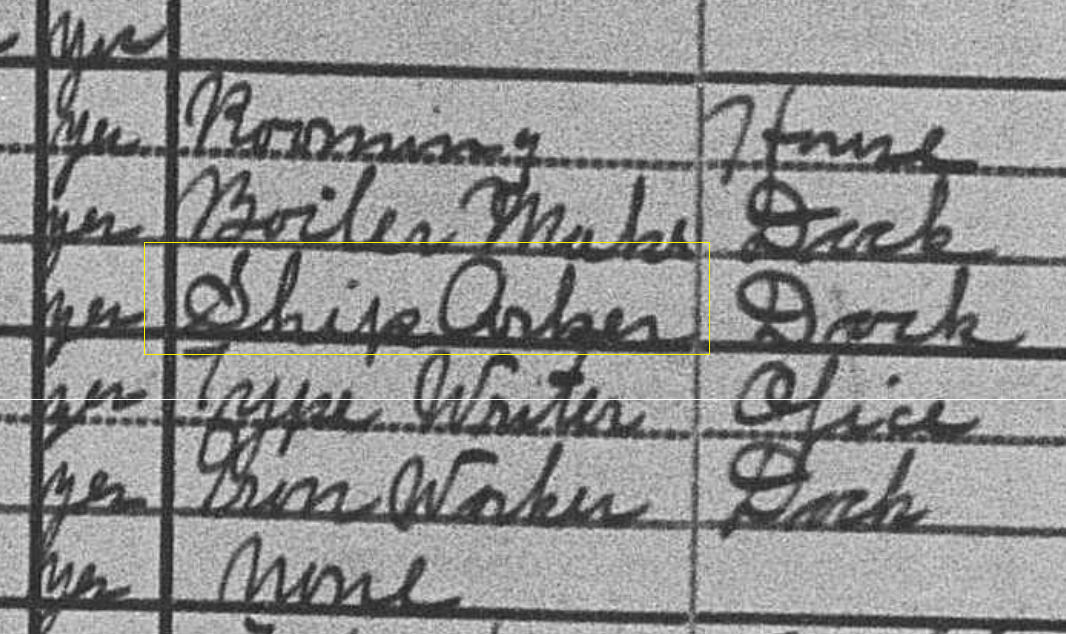 yes
yes Rooming House
yes Boiler Maker Dock
yes Ship Corker Dock
yes Type Writer Ofice
yes Iron Worker Dock
yes None